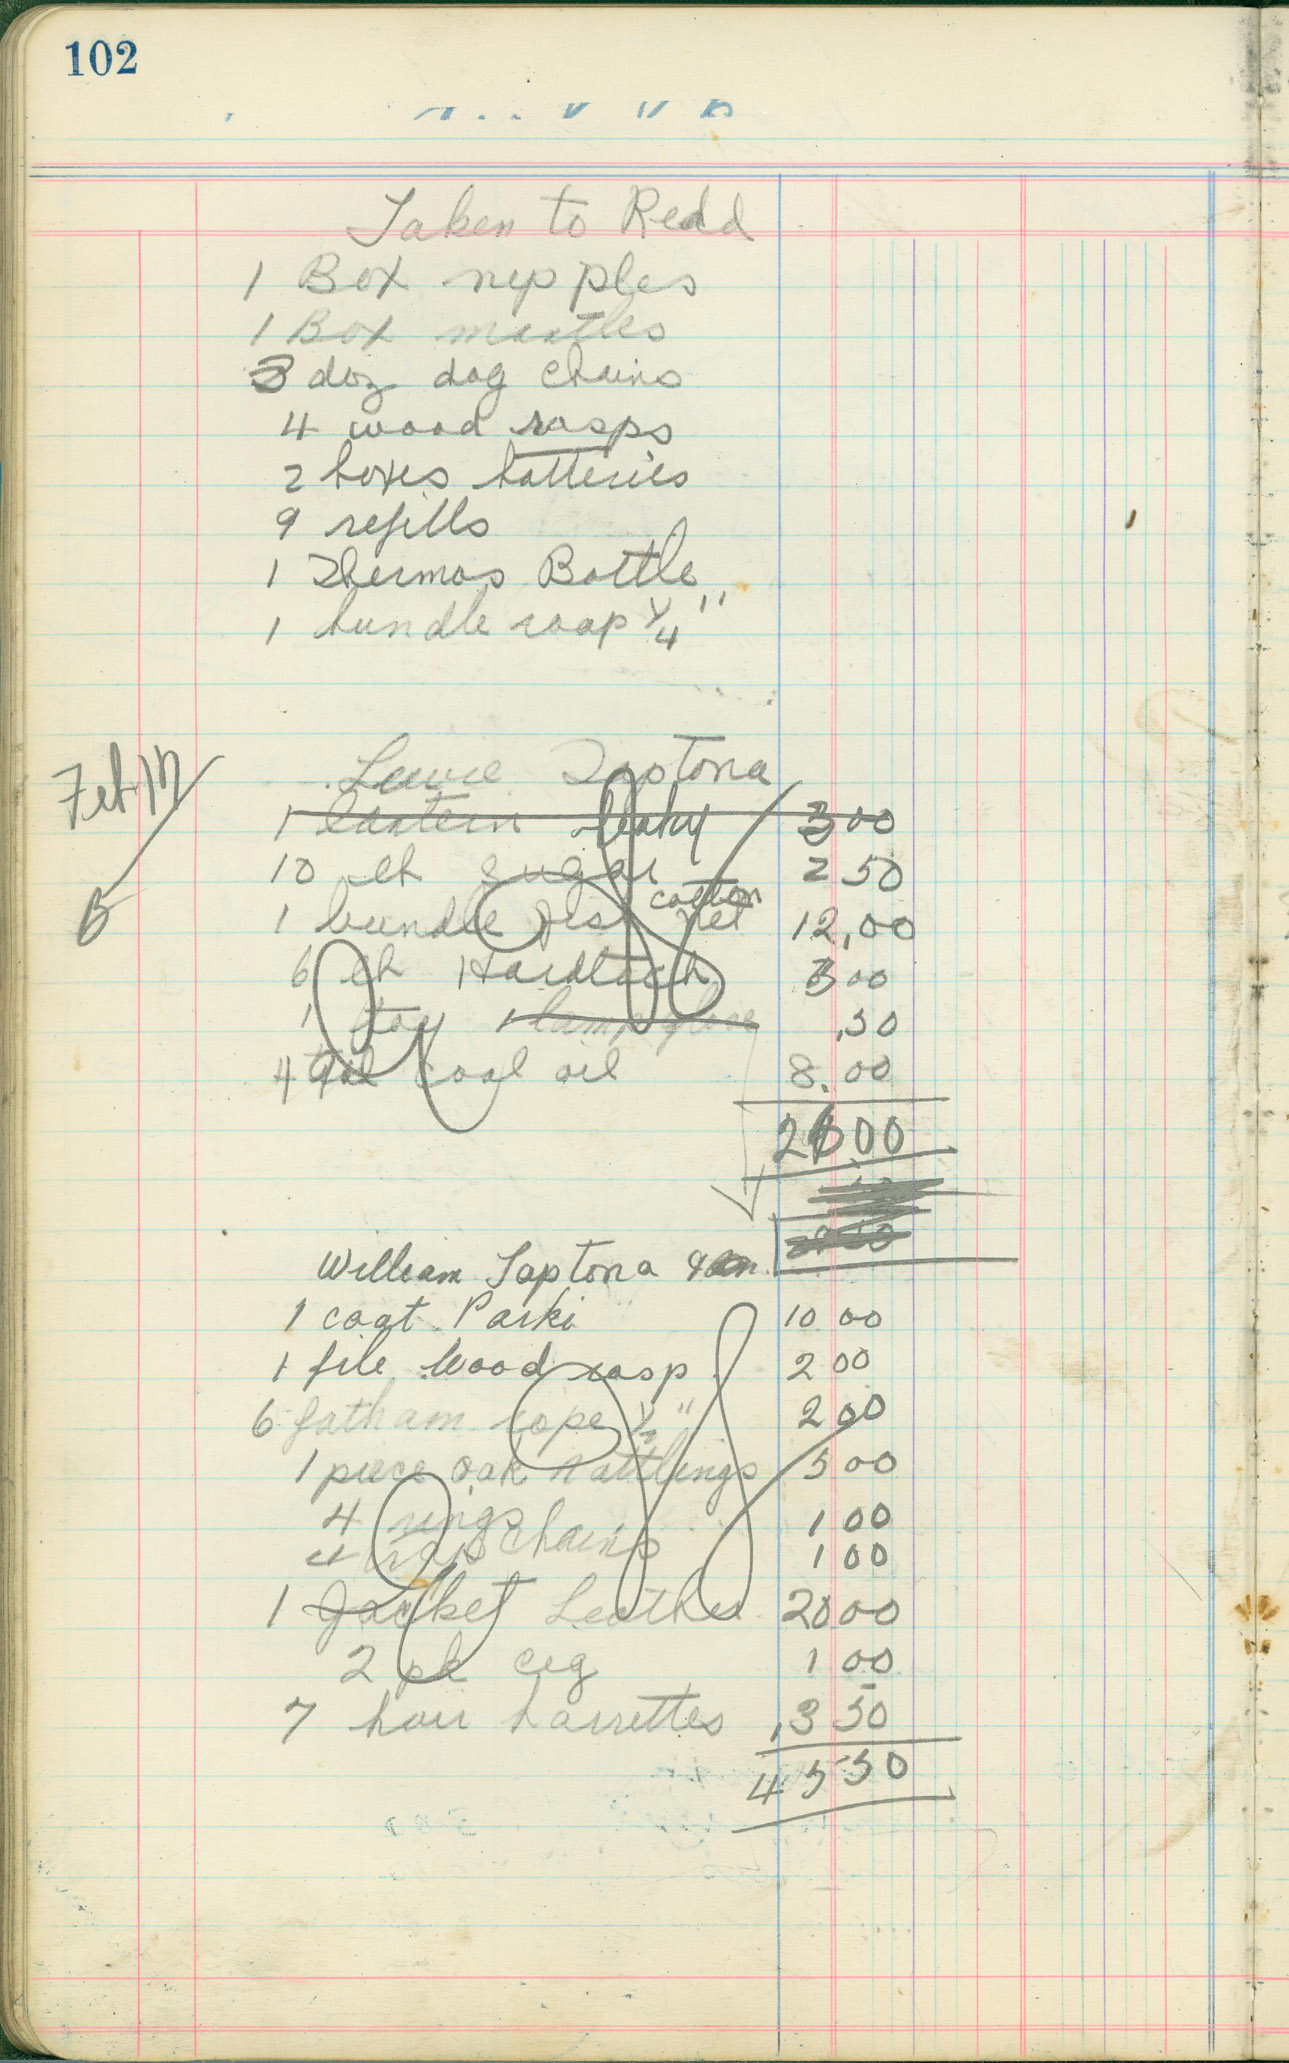 102
Taken to Redd
1 Box nipples
1 Box mantles
3 doz dog chains
4 wood rasps
2 boxes batteries
9 refills
1 Thermos Bottle
1 bundle roap 1/4"
Feb 17
Taptona
1 lantern leaky 3 00
10 lb sugar 2 50
cotton
1 bundle net 12,00
6 lb Hardtack 3 00
1 toy 1 lamp .50
4 gal coal oil 8.00
2600
William Taptona
1 coat Parki 10 00
1 file wood rasp 2 00
6 fatham rope 1/2" 2 00
1 piece oak rattlings 5 00
4 rings 1 00
4 chains 1 00
1 Jacket Leather 20 00
2 pk cig 1 00
7 hair barrettes 3 50
45 50